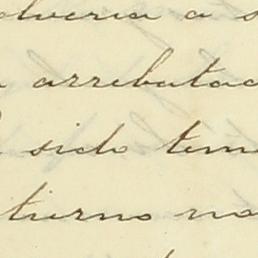 olveria a s
arrebatad
sido tem
tierno no